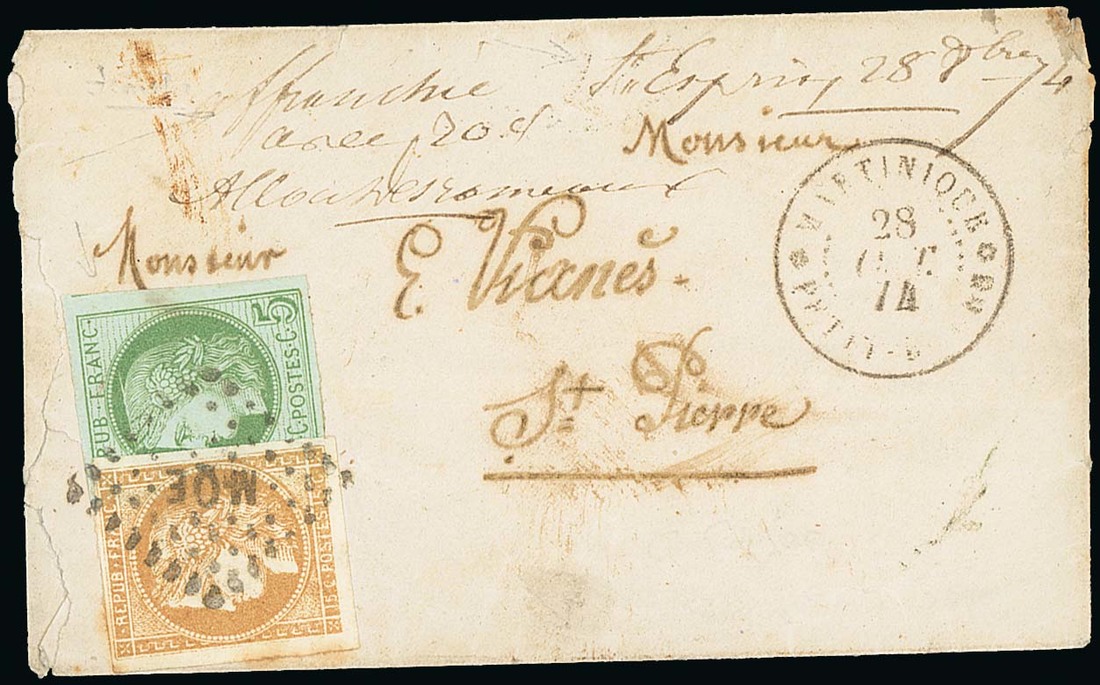 affranchie St Esprit, 28 8bre 74
avec 20c
Monsieur
Monsieur
E. Vianès.
St Pierre
MARTINIQUE
28
OCT.
74
REPUB. FRANC.
5 C. POSTES 5 C.
MQE
REPUB. FRANC.
15 C. POSTES 15 C.